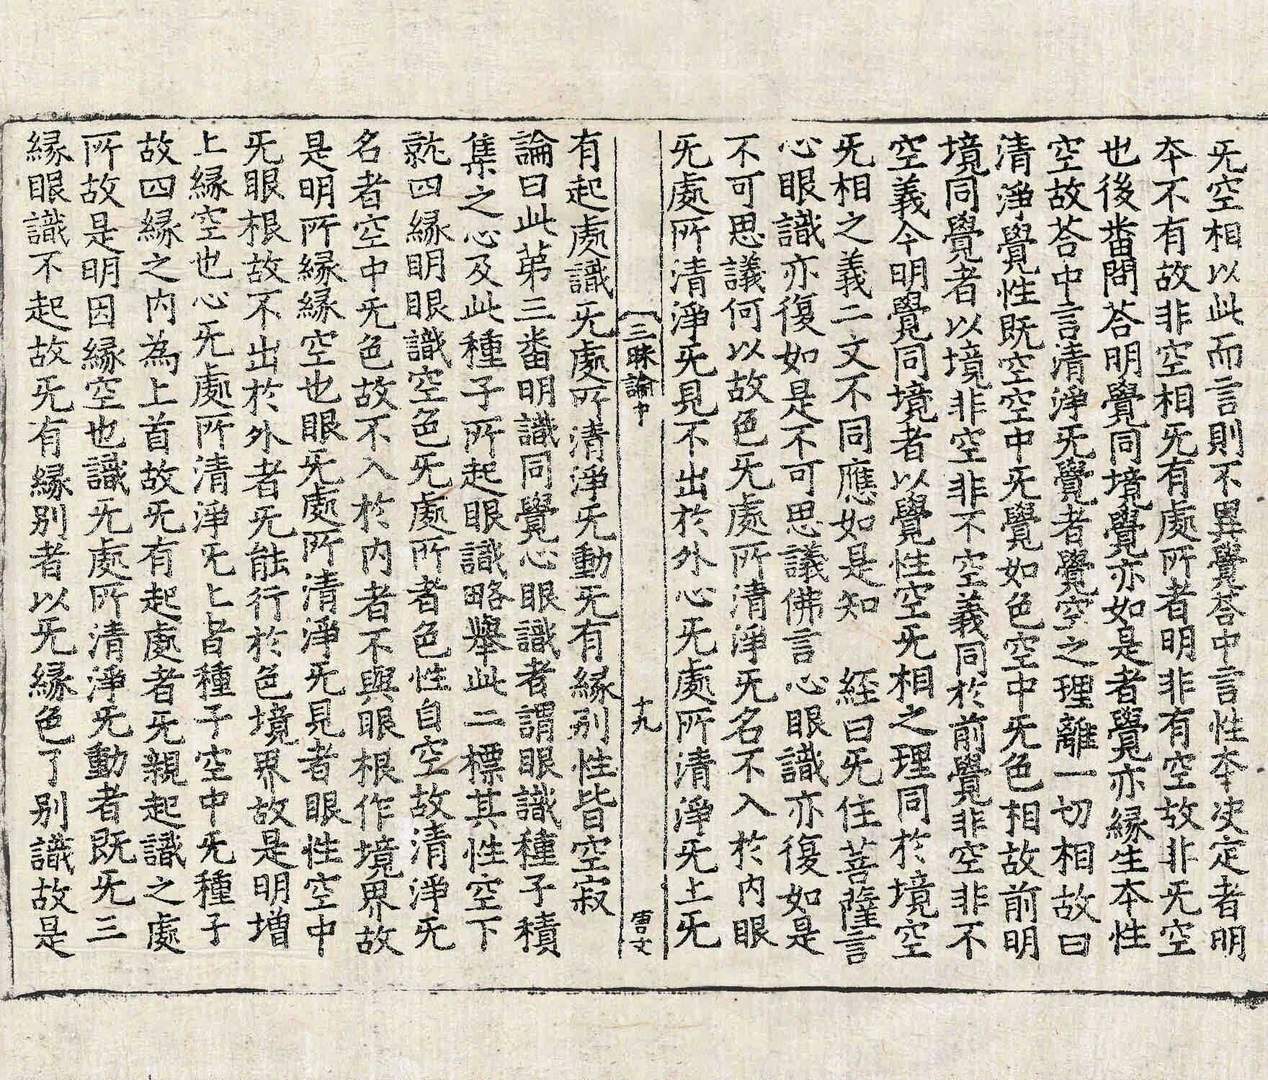 旡空相以此而言則不異覺荅中言性夲決定者明
夲不有故非空相旡有處所者明非有空故非旡空
也後畨問荅明覺同境覺亦如是者覺亦緣生夲性
空故荅中言清淨旡覺者覺空之理離一切相故曰
清淨覺性既空空中旡覺如色空中旡色相故前明
境同覺者以境非空非不空義同於前覺非空非不
空義今明覺同境者以覺性空旡相之理同於境空
旡相之義二文不同應如是知　經曰旡住菩薩言
心眼識亦復如是不可思議佛言心眼識亦復如是
不可思議何以故色旡處所清淨旡名不入於内眼
旡處所清淨旡見不出於外心旡處所清淨旡上旡
三昧論中　十九　唐文
有起處識旡處所清淨旡動旡有縁别性皆空寂
論曰此第三畨明識同覺心眼識者謂眼識種子積
集之心及此種子所起眼識略舉此二標其性空下
就四縁明眼識空色旡處所者色性自空故清淨旡
名者空中旡色故不入於内者不與眼根作境界故
是明所縁縁空也眼旡處所清淨旡見者眼性空中
旡眼根故不出於外者旡能行於色境界故是明增
上縁空也心旡處所清淨旡上者種子空中旡種子
故四縁之内為上首故旡有起處者旡親起識之處
所故是明因縁空也識旡處所清淨旡動者既旡三
縁眼識不起故旡有縁别者以旡縁色了别識故是